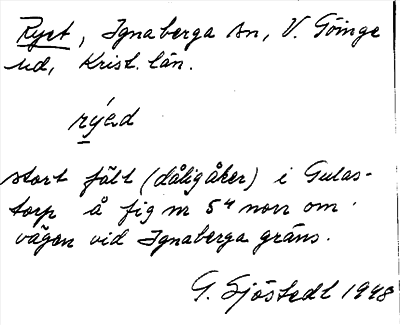 Ryet, Ignaberga sn, V. Göinge
hd, Krist. län.
rýed
stort fält (dålig åker) i Gulas-
torp å fig m 54 norr om
vägen vid Ignaberga gräns.
G. Sjöstedt 1948